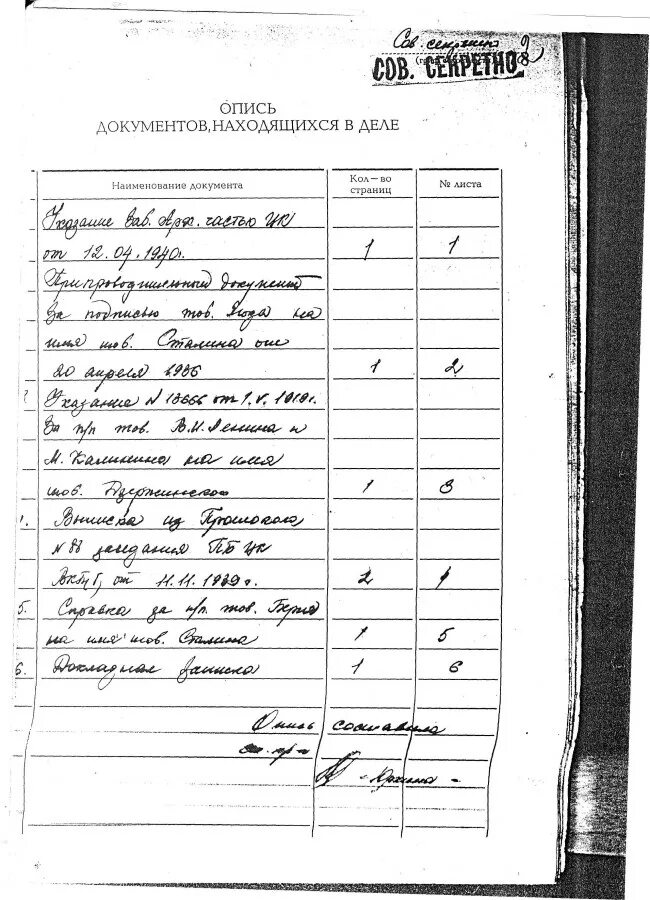 Сов. секретно
СОВ. СЕКРЕТНО
ОПИСЬ
ДОКУМЕНТОВ, НАХОДЯЩИХСЯ В ДЕЛЕ
Наименование документа Кол-во страниц № листа
Указание Зав. Арх. частью ЦК
от 12.04.1940г. 1 1
Припроводительный документ
за подписью тов. Ягода на
имя тов. Сталина от
20 апреля 1936 1 2
Указание N 13666 от 1.V.1919г.
За п/п тов. В.И. Ленина и
М. Калинина на имя
тов. Дзержинского 1 3
Выписка из Протокола
N 88 заседания ПБ ЦК
ВКПб, от 11.11.1939г. 2 4
5. Справка за п/п. тов. Берия
на имя тов. Сталина 1 5
6. Докладная записка 1 6
Опись составила